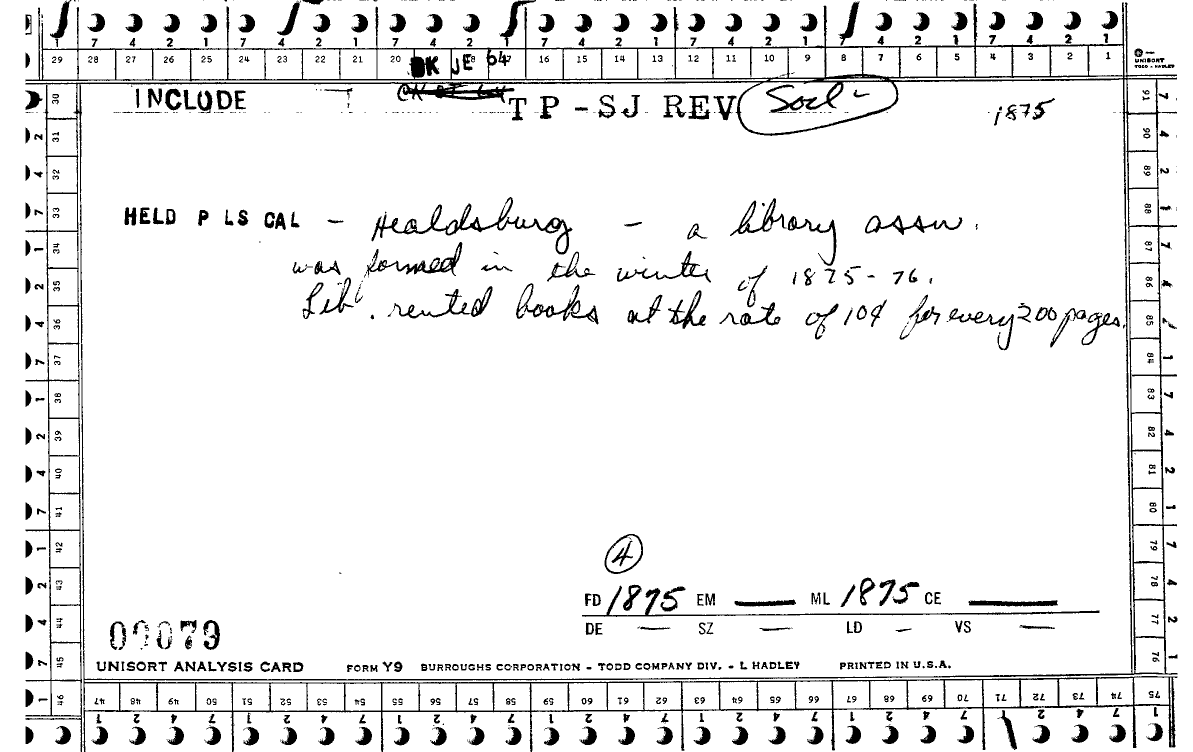 7 4 2 1 7 4 2 1 7 4 2 1 7 4 2 1 7 4 2 1 7 4 2 1 7 4 2 1
29 28 27 26 25 24 23 22 21 20 17 16 15 14 13 12 11 10 9 8 7 6 5 4 3 2 1
UNISORT
TODD - HADLEY
BK JE 64
INCLUDE
TP-SJ REV Socl- 1875
HELD P LS CAL - Healdsburg - a library assn.
was formed in the winter of 1875-76.
Lib. rented books at the rate of 10¢ for every 200 pages.
4
FD 1875 EM — ML 1875 CE —
DE — SZ — LD — VS —
00079
UNISORT ANALYSIS CARD FORM Y9 BURROUGHS CORPORATION - TODD COMPANY DIV. - L HADLEY PRINTED IN U.S.A.
30 31 32 33 34 35 36 37 38 39 40 41 42 43 44 45 46
91 90 89 88 87 86 85 84 83 82 81 80 79 78 77 76
47 48 49 50 51 52 53 54 55 56 57 58 59 60 61 62 63 64 65 66 67 68 69 70 71 72 73 74 75